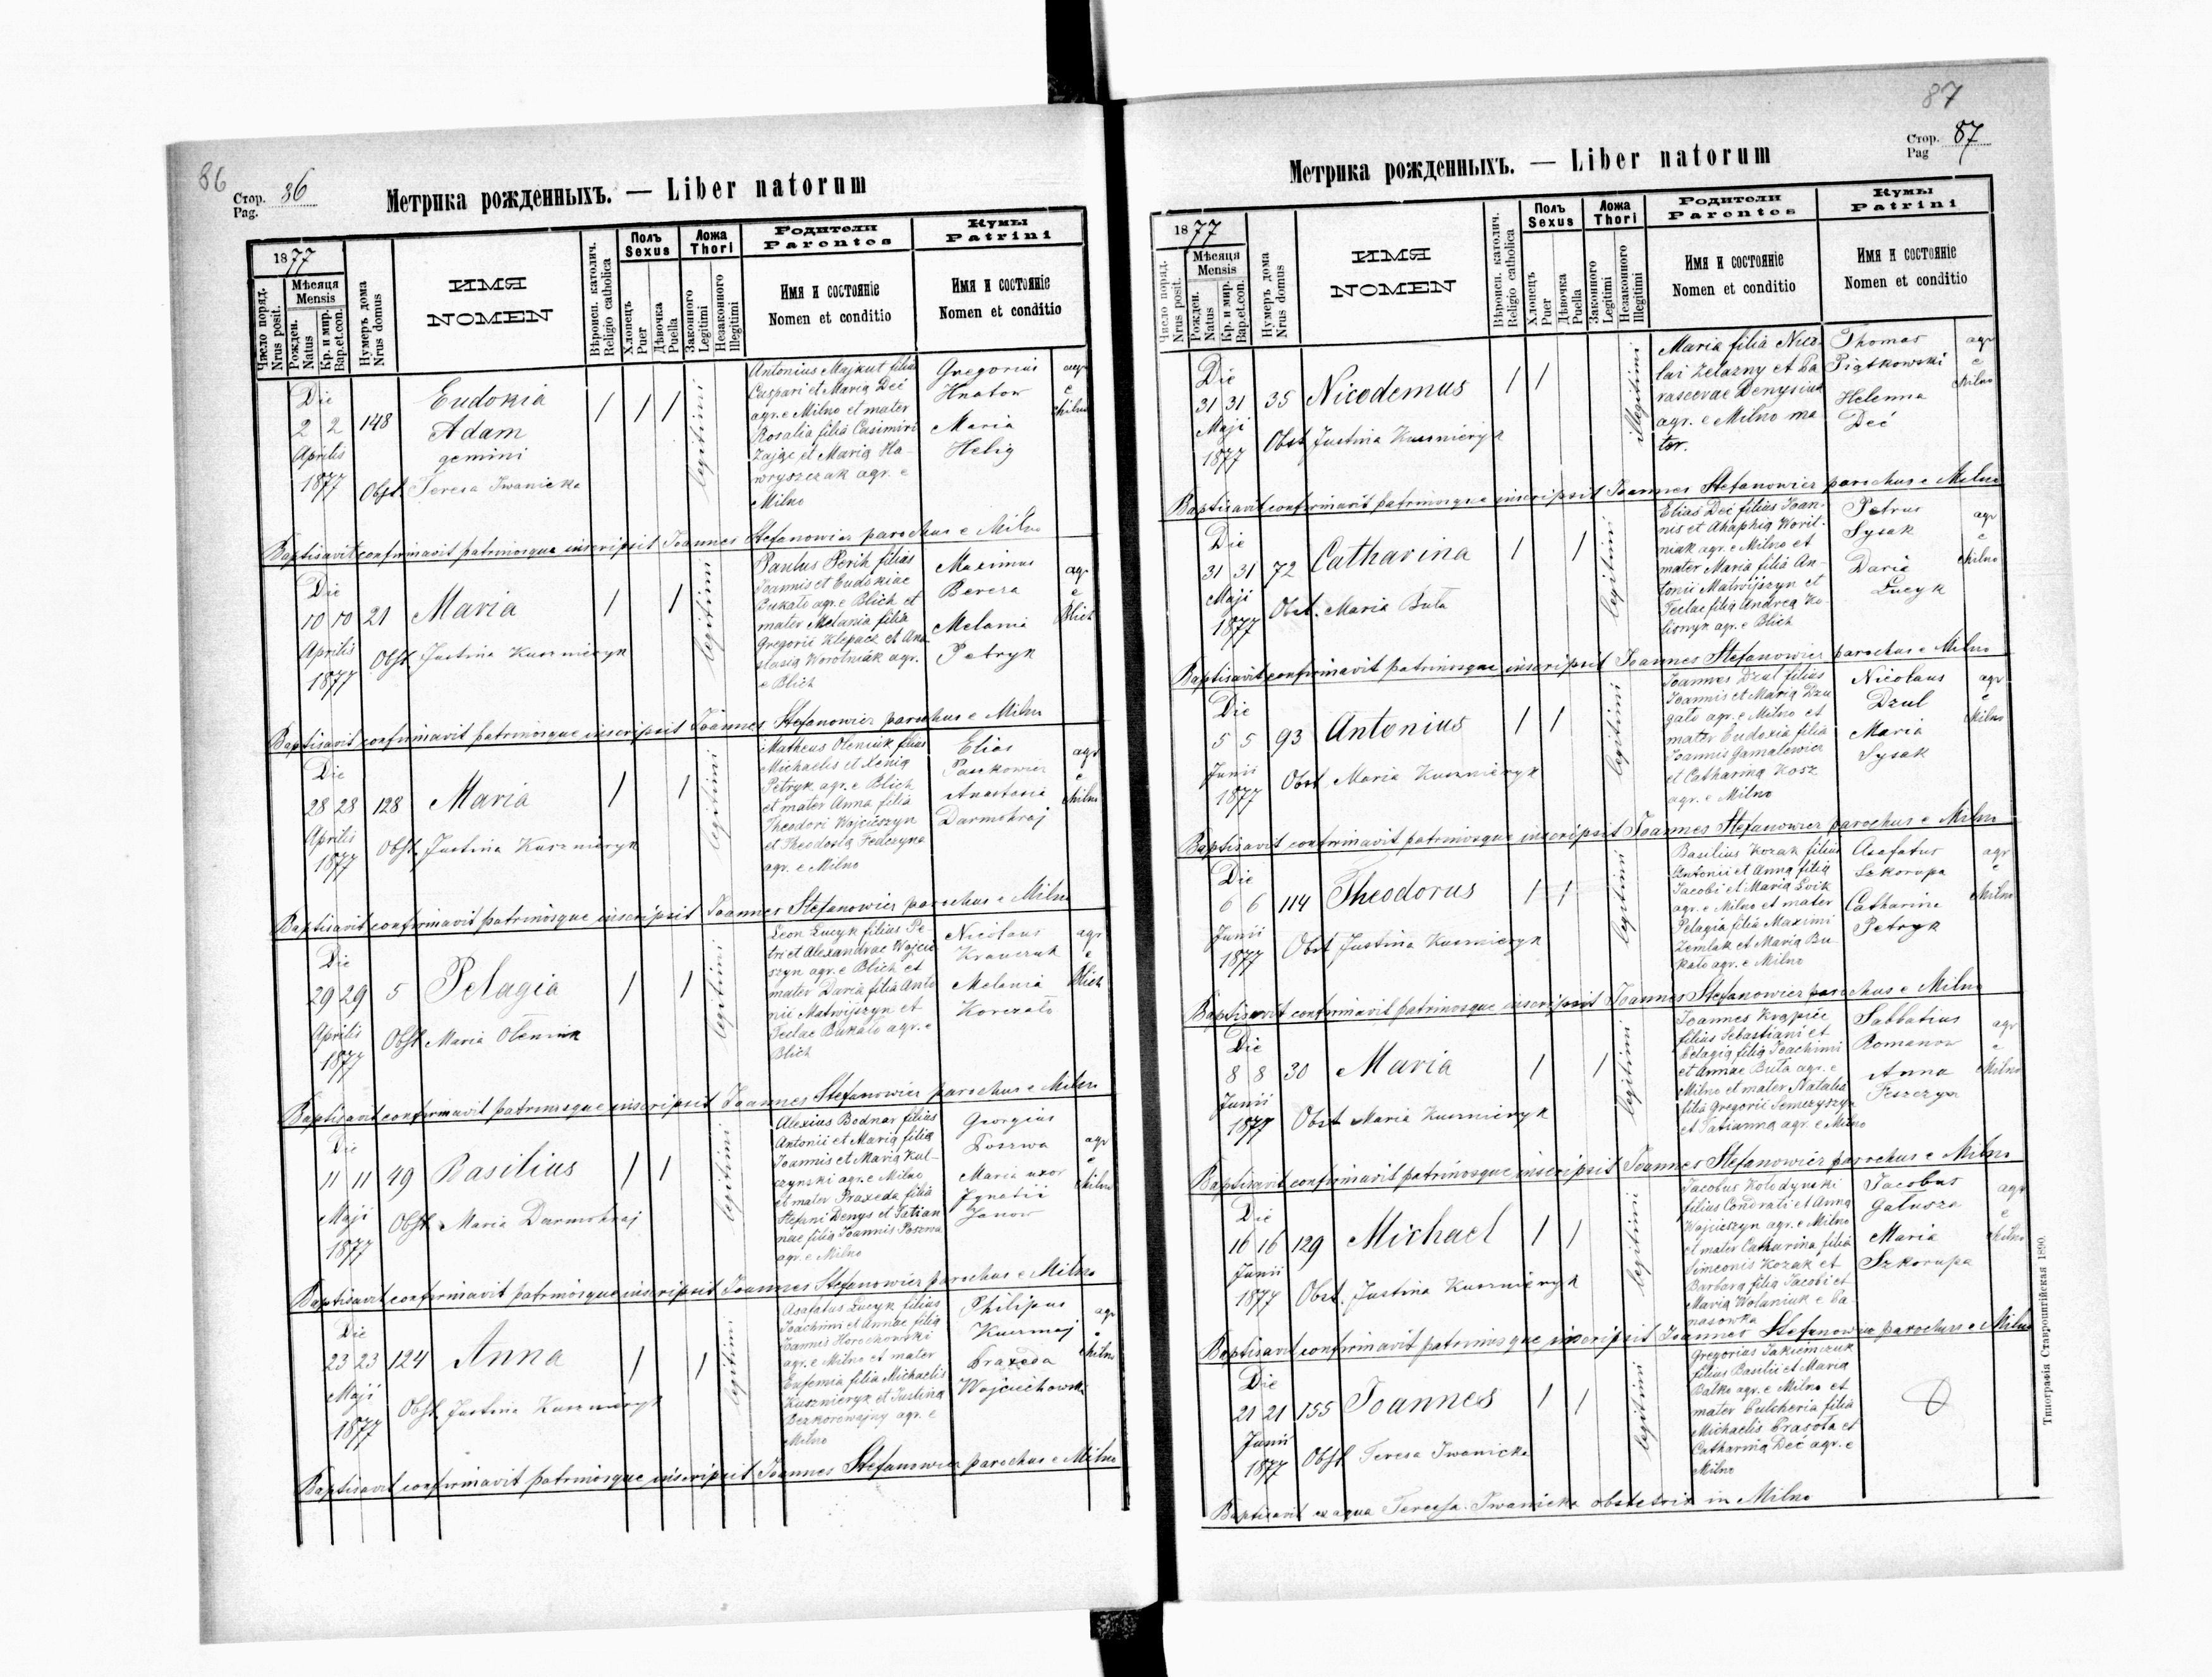 86
Стор. 86
Pag.
Метрика рожденныхъ. — Liber natorum
1877
Мѣсяця
Mensis
Число поряд.
Nrus posit.
Рожден.
Natus
Кр. и мир.
Bap.et.con.
Нумеръ дома
Nrus domus
ИМЯ
NOMEN
Вѣроисп. католич.
Religio catholica
Полъ
Sexus
Хлопецъ
Puer
Дѣвочка
Puella
Ложа
Thori
Законного
Legitimi
Незаконного
Illegitimi
Родители
Parentes
Имя и состояніе
Nomen et conditio
Кумы
Patrini
Имя и состояніе
Nomen et conditio
Die
2 2
Aprilis
1877
148
Eudokia
Adam
gemini
Obst. Teresa Iwanicka
/ / /
legitimi
Antonius Majkut filius
Caspari et Maria Deć
agr. e Milno et mater
Rosalia filia Casimiri
Zając et Maria Ha-
wryszczak agr. e
Milno
Gregorius
Hnatow
Maria
Helig
agr
e
Milno
Baptisavit confirmavit patrinosque inscripsit Joannes Stefanowicz parochus e Milno
Die
10 10
Aprilis
1877
21
Maria
Obst. Justina Kuszmeryk
/ /
legitimi
Paulus Perih filius
Joannis et Eudokiae
Bukało agr. e Blich et
mater Melania filia
Gregorii Klepacz et Ana-
stasia Worotniak agr.
e Blich
Maximus
Bereza
Melania
Petryk
agr
e
Blich
Baptisavit confirmavit patrinosque inscripsit Joannes Stefanowicz parochus e Milno
Die
28 28
Aprilis
1877
128
Maria
Obst. Justina Kuszmeryk
/ /
legitimi
Matheus Oleniuk filius
Michaelis et Xenia
Petryk agr. e Blich
et mater Anna filia
Theodori Wojciszyn
et Theodosia Fedczyna
agr. e Milno
Elias
Paukowicz
Anastasia
Darmohraj
agr
e
Milno
Baptisavit confirmavit patrinosque inscripsit Joannes Stefanowicz parochus e Milno
Die
29 29
Aprilis
1877
5
Pelagia
Obst. Maria Oleniuk
/ /
legitimi
Leon Lucyk filius Pe-
tri et Alexandrae Wojci-
szyn agr. e Blich et
mater Daria filia Anto
nii Matwijszyn et
Teclae Bukało agr. e
Blich
Nicolaus
Krawczuk
Melania
Korczało
agr
e
Blich
Baptisavit confirmavit patrinosque inscripsit Joannes Stefanowicz parochus e Milno
Die
11 11
Maji
1877
49
Basilius
Obst. Maria Darmohraj
/ /
legitimi
Alexius Bodnar filius
Antonii et Maria filia
Joannis et Maria Kul-
czynski agr. e Milno
et mater Praxeda filia
Stefani Denys et Tatian
nae filia Joannis Poszwa
agr. e Milno
Georgius
Poszwa
Maria uxor
Ignatii
Janow
agr
e
Milno
Baptisavit confirmavit patrinosque inscripsit Joannes Stefanowicz parochus e Milno
Die
23 23
Maji
1877
124
Anna
Obst. Justina Kuszmeryk
/ /
legitimi
Asafatus Lucyk filius
Joachimi et Annae filia
Joannis Horochowski
agr. e Milno et mater
Eufemia filia Michaelis
Kuszmeryk et Justina
Bezkorowajny agr. e
Milno
Philipus
Kuczmaj
Praxeda
Wojciechowski
agr
e
Milno
Baptisavit confirmavit patrinosque inscripsit Joannes Stefanowicz parochus e Milno
87
Стор. 87
Pag
Метрика рожденныхъ. — Liber natorum
1877
Мѣсяця
Mensis
Число поряд.
Nrus posit.
Рожден.
Natus
Кр. и мир.
Bap.et.con.
Нумеръ дома
Nrus domus
ИМЯ
NOMEN
Вѣроисп. католич.
Religio catholica
Полъ
Sexus
Хлопецъ
Puer
Дѣвочка
Puella
Ложа
Thori
Законного
Legitimi
Незаконного
Illegitimi
Родители
Parentes
Имя и состояніе
Nomen et conditio
Кумы
Patrini
Имя и состояніе
Nomen et conditio
Die
31 31
Maji
1877
35
Nicodemus
Obst. Justina Kuszmeryk
/ /
illegitimi
Maria filia Nico
lai Zelazny et Pa
rascevae Denysiuk
agr. e Milno ma
ter.
Thomas
Piątkowski
Helenna
Deć
agr
e
Milno
Baptisavit confirmavit patrinosque inscripsit Joannes Stefanowicz parochus e Milno
Die
31 31
Maji
1877
72
Catharina
Obst. Maria Buta
/ /
legitimi
Elias Deć filius Joan-
nis et Ahaphia Worit-
niak agr. e Milno et
mater Maria filia An-
tonii Matwijszyn et
Teclae filia Andrea Ko-
lionyk agr. e Blich
Petrus
Sysak
Daria
Lucyk
agr
e
Milno
Baptisavit confirmavit patrinosque inscripsit Joannes Stefanowicz parochus e Milno
Die
5 5
Junii
1877
93
Antonius
Obst Maria Kuszmeryk
/ /
legitimi
Joannes Dzul filius
Joannis et Maria Dzu
gało agr. e Milno et
mater Eudoxia filia
Joannis Gamalewicz
et Catharina Kosz
agr. e Milno
Nicolaus
Dzul
Maria
Sysak
agr
e
Milno
Baptisavit confirmavit patrinosque inscripsit Joannes Stefanowicz parochus e Milno
Die
6 6
Junii
1877
114
Theodorus
Obst Justina Kuszmeryk
/ /
legitimi
Basilius Kozak filius
Antonii et Anna filia
Jacobi et Maria Lvik
agr. e Milno et mater
Pelagia filia Maximi
Zemlak et Maria Bu-
kało agr. e Milno
Asafatus
Szkorupa
Catharina
Petryk
agr
e
Milno
Baptisavit confirmavit patrinosque inscripsit Joannes Stefanowicz parochus e Milno
Die
8 8
Junii
1877
30
Maria
Obst Maria Kuszmeryk
/ /
legitimi
Joannes Krąpiec
filius Sebastiani et
Pelagia filia Joachimi
et Annae Buta agr. e
Milno et mater Natalia
filia Gregorii Semczyszyn
et Tatianna agr. e Milno
Sabbatius
Romanow
Anna
Feszczyn
agr
e
Milno
Baptisavit confirmavit patrinosque inscripsit Joannes Stefanowicz parochus e Milno
Die
16 16
Junii
1877
129
Michael
Obst. Justina Kuszmeryk
/ /
legitimi
Jacobus Kolodynski
filius Condrati et Anna
Wojciszyn agr. e Milno
et mater Catharina filia
Simeonis Kozak et
Barbara filia Jacobi et
Maria Wolaniuk e Pa-
nasowka
Jacobus
Gałusza
Maria
Szkorupa
agr
e
Milno
Baptisavit confirmavit patrinosque inscripsit Joannes Stefanowicz parochus e Milno
Die
21 21
Junii
1877
155
Joannes
Obst Teresa Iwanicka
/ /
legitimi
Gregorius Jakiemczuk
filius Basilii et Maria
Balko agr. e Milno et
mater Pulcheria filia
Michaelis Prasota et
Catharina Deć agr. e
Milno
Baptisavit ex aqua Teressa Iwanicka obstetrix in Milno
Типографія Ставропигійская 1890.